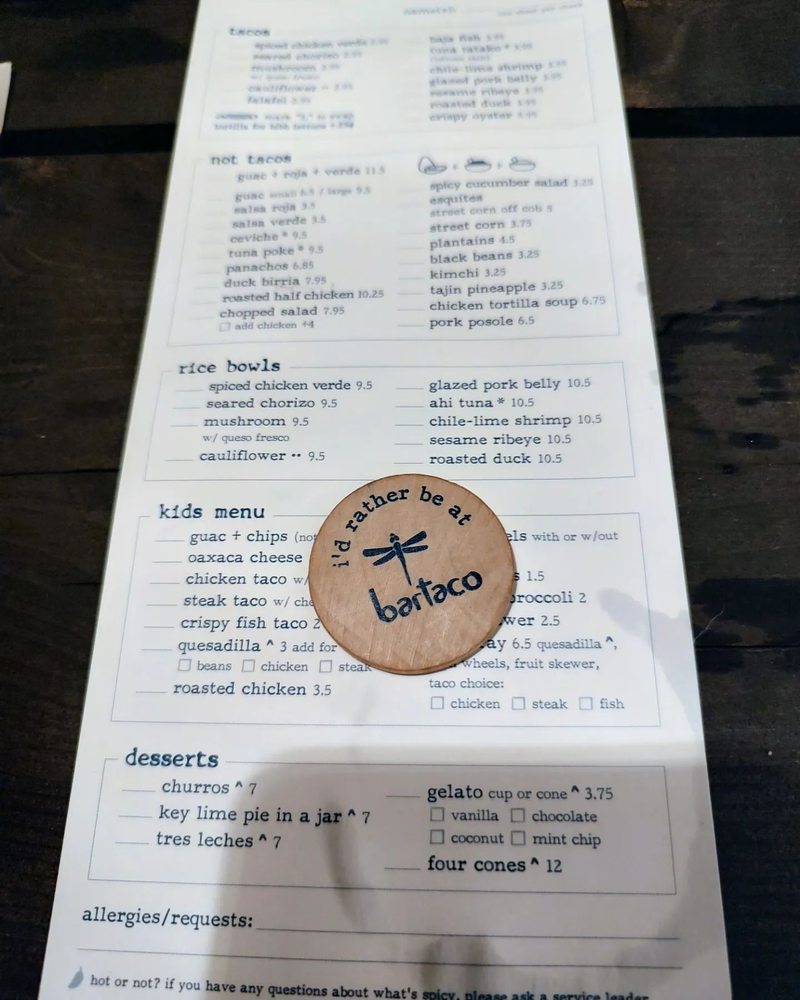 tacos
spiced chicken verde
seared chorizo
mushroom
cauliflower
falafel
baja fish
tuna tataki *
chile-lime shrimp
glazed pork belly
sesame ribeye
roasted duck
crispy oyster
not tacos
guac + roja + verde 11.5
guac small 6.5 / large 9.5
salsa roja 3.5
salsa verde 3.5
ceviche * 9.5
tuna poke * 9.5
panachos 6.85
duck birria 7.95
roasted half chicken 10.25
chopped salad 7.95
add chicken +4
spicy cucumber salad 3.25
esquites
street corn off cob 5
street corn 3.75
plantains 4.5
black beans 3.25
kimchi 3.25
tajin pineapple 3.25
chicken tortilla soup 6.75
pork posole 6.5
rice bowls
spiced chicken verde 9.5
seared chorizo 9.5
mushroom 9.5
w/ queso fresco
cauliflower •• 9.5
glazed pork belly 10.5
ahi tuna * 10.5
chile-lime shrimp 10.5
sesame ribeye 10.5
roasted duck 10.5
kids menu
guac + chips
oaxaca cheese
chicken taco w/
steak taco w/
crispy fish taco 2
quesadilla ^ 3 add for
beans chicken steak
roasted chicken 3.5
with or w/out
1.5
broccoli 2
2.5
6.5 quesadilla ^,
wheels, fruit skewer,
taco choice:
chicken steak fish
i'd rather be at
bartaco
desserts
churros ^ 7
key lime pie in a jar ^ 7
tres leches ^ 7
gelato cup or cone ^ 3.75
vanilla chocolate
coconut mint chip
four cones ^ 12
allergies/requests:
hot or not? if you have any questions about what's spicy, please ask a service leader